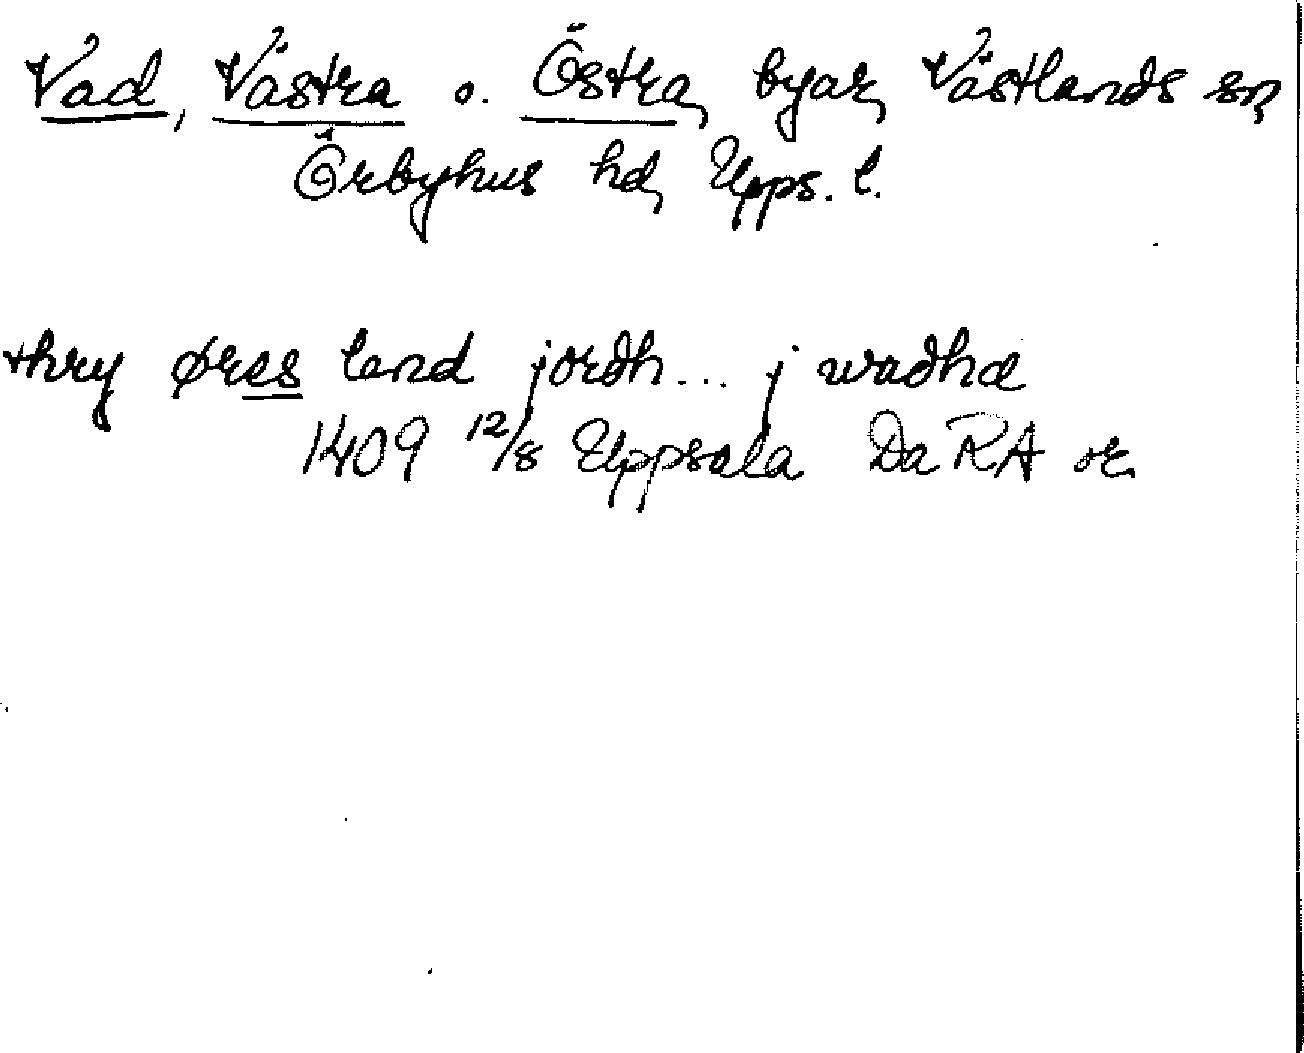 Vad, Västra o. Östra, byar, Västlands sn,
Örbyhus hd, Upps. l.
thry øress land jordh... j wadhæ
1409 12/8 Uppsala Da RA or.